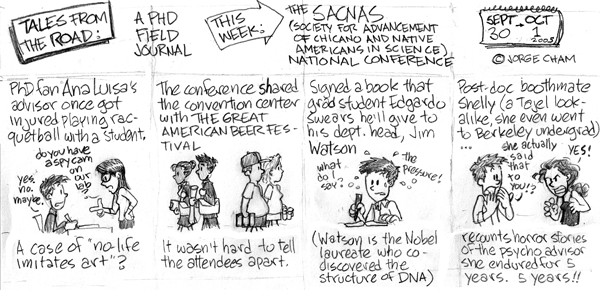 TALES FROM
THE ROAD:
A PHD
FIELD
JOURNAL
THIS
WEEK:
THE SACNAS
(SOCIETY FOR ADVANCEMENT
OF CHICANO AND NATIVE
AMERICANS IN SCIENCE)
NATIONAL CONFERENCE
SEPT. OCT
30 1
2005
© JORGE CHAM
PhD fan Ana Luisa's
advisor once got
injured playing rac-
quetball with a student.
do you have
a spy cam
on our
lab?
yes.
no.
maybe.
A case of "no life
imitates art"?
The conference shared
the convention center
with THE GREAT
AMERICAN BEER FES-
TIVAL
It wasn't hard to tell
the attendees apart.
Signed a book that
grad student Edgardo
swears he'll give to
his dept. head, Jim
Watson
what
do I
say?
the
pressure!
(Watson is the Nobel
laureate who co-
discovered the
structure of DNA)
Post-doc boothmate
Shelly (a Tajel look-
alike, she even went
to Berkeley undergrad)
...
she actually
said
that
to
you!?
YES!
recounts horror stories
of the psycho advisor
she endured for 5
years. 5 years!!